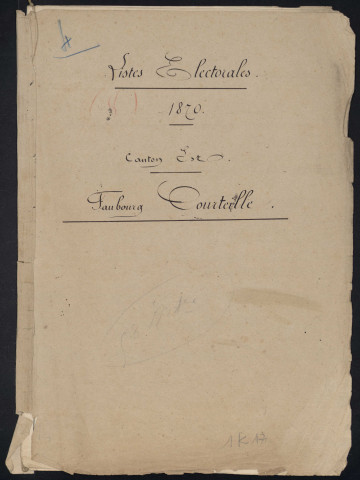 Listes Electorales.
1870.
Canton Est.
Faubourg Courteille.
1K17